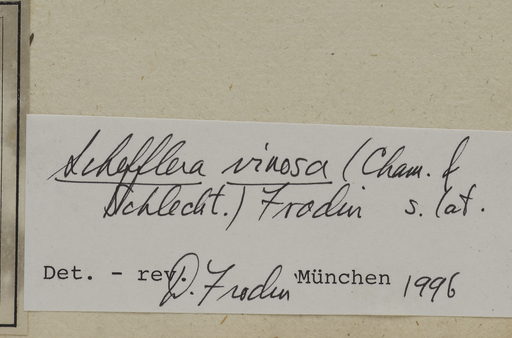 Schefflera vinosa (Cham. &
Schlecht.) Frodin s. lat.
Det. - rev. D. Frodin München 1996